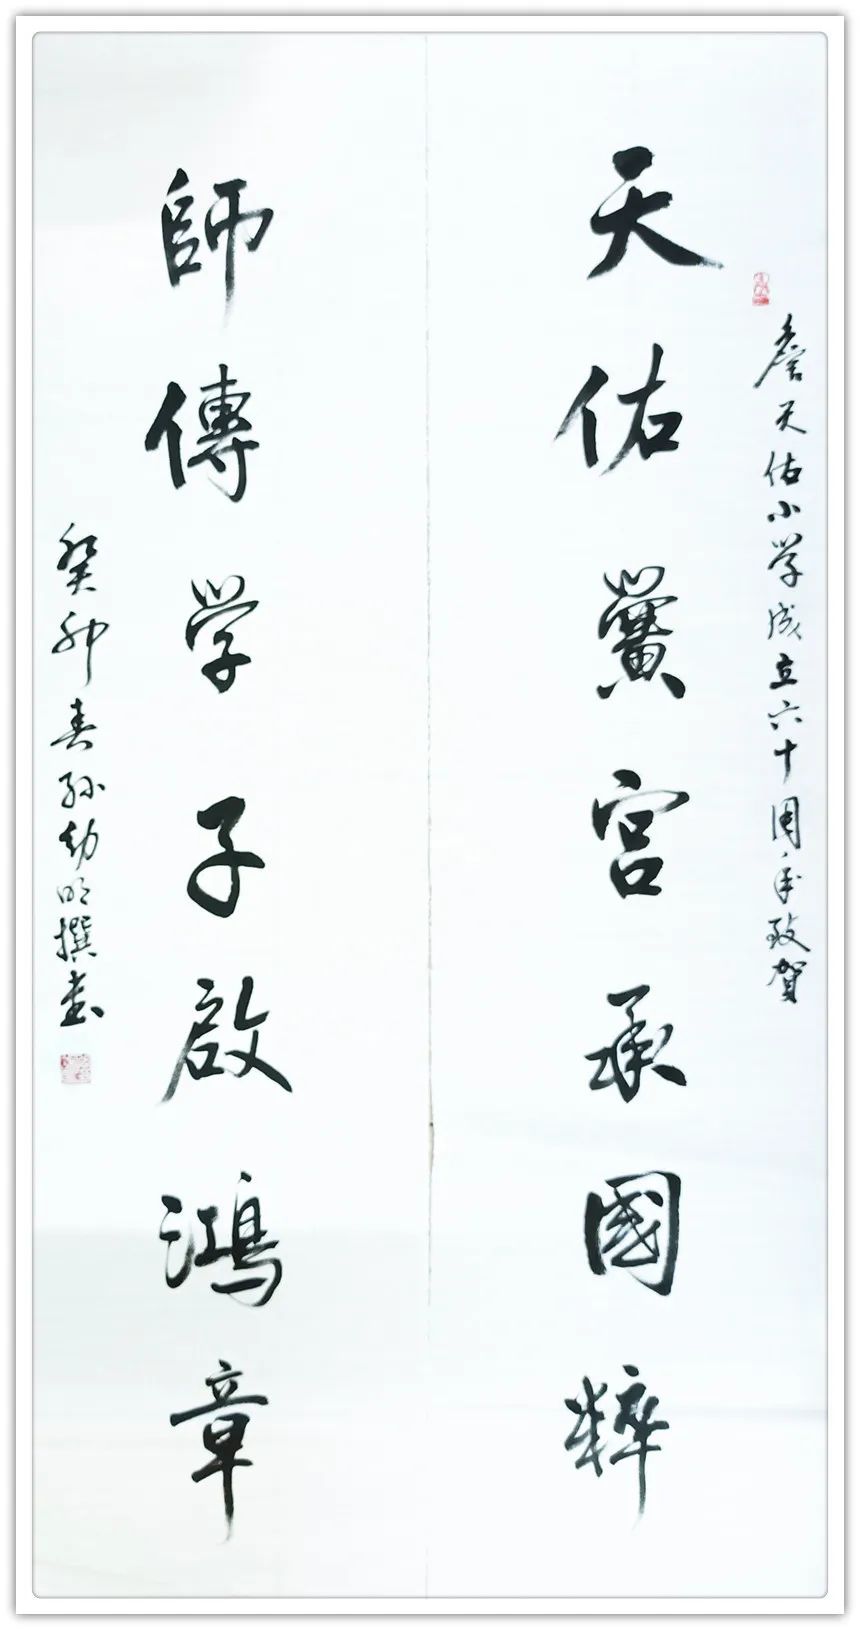 詹天佑小学成立六十周年致贺
天佑黉宫承國粹
師傳学子啟鴻章
癸卯春孙幼明撰书